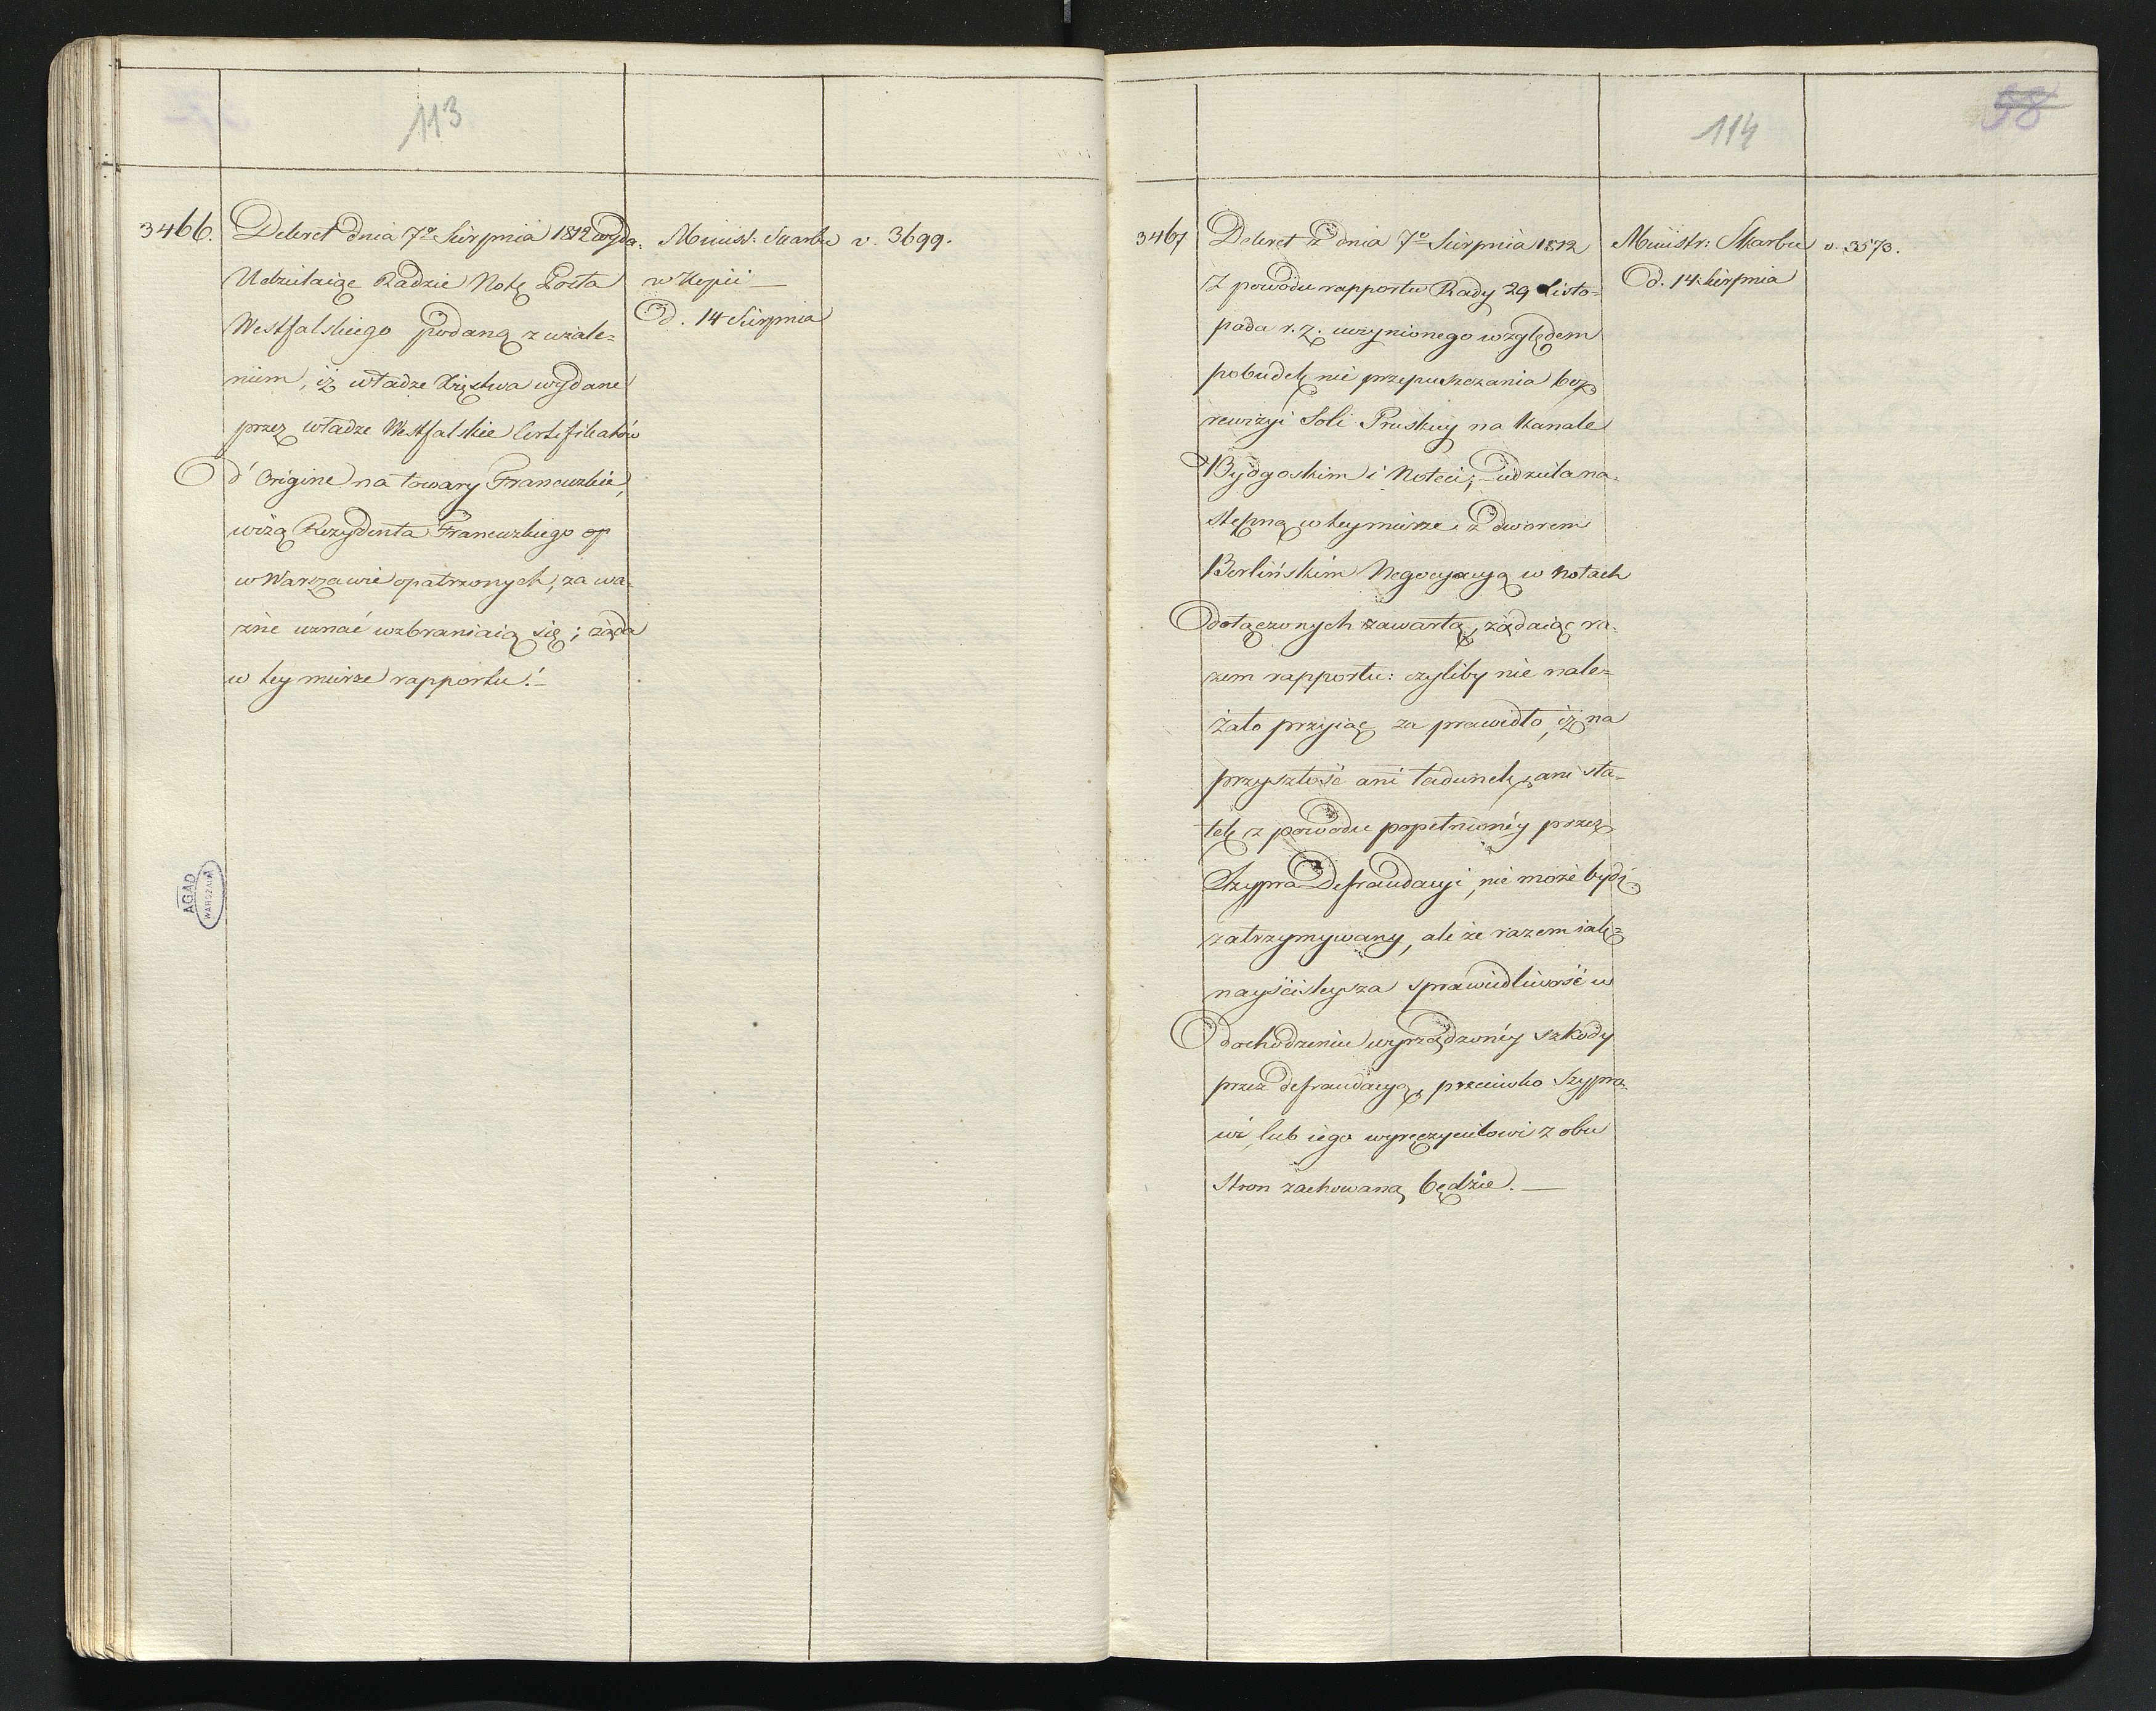 113
3466. Dekret dnia 7º Sierpnia 1812 wyda.
Udzielaiąc Radzie Notę Posła
Westfalskiego podaną z użale-
niem, iż władze Xięstwa wydane
przez władze Westfalskie Certifikatów
d'Origine na towary Francuzkie,
wizą Rezydenta Francuzkiego op
w Warszawie opatrzonych, za wa-
żne uznać wzbraniaią się; żąda
w tey mierze rapportu!-
Minist: Skarbu
w Kopii —
d. 14 Sierpnia
v. 3699.
AGAD
WARSZAWA
114
58
3467 Dekret z dnia 7º Sierpnia 1812
Z powodu rapportu Rady 29 Listo-
pada r. z. uczynionego względem
pobudek nie przepuszczania bez
rewizyi Soli Pruskiey na Kanale
Bydgoskim i Noteci; udziela na-
stępną w tey mierze z Dworem
Berlińskim Negocyacyą w Notach
dołączonych zawartą, żądaiąc ra-
zem rapportu: czyliby nie nale-
żało przyiąć za prawidło, iż na
przyszłość ani ładunek, ani sta-
tek z powodu popełnionéy przez
Szypra Defraudacyi, nie może bydź
zatrzymywany, ale że razem iak-
nayściśleysza sprawiedliwość w
dochodzeniu wyrządzonéy szkody
przez defraudacyą, przeciwko Szypro-
wi, lub iego wyręczycielowi z obu
stron zachowaną będzie. —
Ministr: Skarbu
d. 14 Sierpnia
v. 3573.